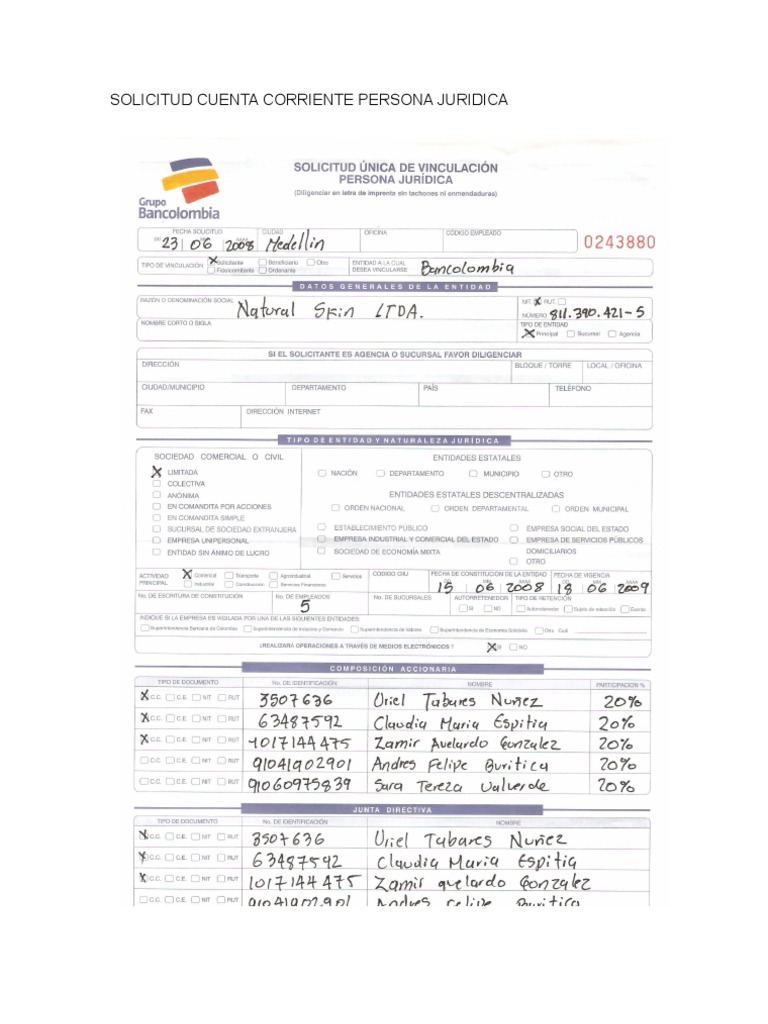 SOLICITUD CUENTA CORRIENTE PERSONA JURIDICA
SOLICITUD ÚNICA DE VINCULACIÓN
PERSONA JURÍDICA
(Diligenciar en letra de imprenta sin tachones ni enmendaduras)
Grupo
Bancolombia
FECHA SOLICITUD CIUDAD OFICINA CÓDIGO EMPLEADO
23 06 2008 Medellin
0243880
TIPO DE VINCULACIÓN X Solicitante Beneficiario Otro ENTIDAD A LA CUAL Bancolombia
Fideicomitente Ordenante DESEA VINCULARSE
DATOS GENERALES DE LA ENTIDAD
RAZÓN O DENOMINACIÓN SOCIAL NIT. X RUT.
Natural Skin LTDA. NÚMERO 811.390.421-5
NOMBRE CORTO O SIGLA TIPO DE ENTIDAD
X Principal Sucursal Agencia
SI EL SOLICITANTE ES AGENCIA O SUCURSAL FAVOR DILIGENCIAR
DIRECCIÓN BLOQUE / TORRE LOCAL / OFICINA
CIUDAD/MUNICIPIO DEPARTAMENTO PAÍS TELÉFONO
FAX DIRECCIÓN INTERNET
TIPO DE ENTIDAD Y NATURALEZA JURÍDICA
SOCIEDAD COMERCIAL O CIVIL ENTIDADES ESTATALES
X LIMITADA NACIÓN DEPARTAMENTO MUNICIPIO OTRO
COLECTIVA
ANÓNIMA ENTIDADES ESTATALES DESCENTRALIZADAS
EN COMANDITA POR ACCIONES ORDEN NACIONAL ORDEN DEPARTAMENTAL ORDEN MUNICIPAL
EN COMANDITA SIMPLE
SUCURSAL DE SOCIEDAD EXTRANJERA ESTABLECIMIENTO PÚBLICO EMPRESA SOCIAL DEL ESTADO
EMPRESA UNIPERSONAL EMPRESA INDUSTRIAL Y COMERCIAL DEL ESTADO EMPRESA DE SERVICIOS PÚBLICOS
ENTIDAD SIN ÁNIMO DE LUCRO SOCIEDAD DE ECONOMÍA MIXTA DOMICILIARIOS
OTRO
ACTIVIDAD X Comercial Transporte Agroindustrial Servicios CÓDIGO CIIU FECHA DE CONSTITUCIÓN DE LA ENTIDAD FECHA DE VIGENCIA
PRINCIPAL Industrial Construcción Servicios Financieros 15 06 2008 18 06 2009
No. DE ESCRITURA DE CONSTITUCIÓN No. DE EMPLEADOS No. DE SUCURSALES AUTORRETENEDOR TIPO DE RETENCIÓN
5 SI NO Autorretenedor Sujeto de retención Exento
INDIQUE SI LA EMPRESA ES VIGILADA POR UNA DE LAS SIGUIENTES ENTIDADES:
Superintendencia Bancaria de Colombia Superintendencia de Industria y Comercio Superintendencia de Valores Superintendencia de Economía Solidaria Otra Cuál
¿REALIZARÁ OPERACIONES A TRAVÉS DE MEDIOS ELECTRÓNICOS? X SI NO
COMPOSICIÓN ACCIONARIA
TIPO DE DOCUMENTO No. DE IDENTIFICACIÓN NOMBRE PARTICIPACION %
X C.C. C.E. NIT RUT 3507636 Uriel Tabares Nuñez 20%
X C.C. C.E. NIT RUT 63487592 Claudia Maria Espitia 20%
X C.C. C.E. NIT RUT 1017144475 Zamir Avelardo Gonzalez 20%
C.C. C.E. NIT RUT 91041902901 Andres Felipe Buritica 20%
C.C. C.E. NIT RUT 91060975839 Sara Tereza Valverde 20%
JUNTA DIRECTIVA
TIPO DE DOCUMENTO No. DE IDENTIFICACIÓN NOMBRE
X C.C. C.E. NIT RUT 3507636 Uriel Tabares Nuñez
X C.C. C.E. NIT RUT 63487592 Claudia Maria Espitia
X C.C. C.E. NIT RUT 1017144475 Zamir avelardo Gonzalez
C.C. C.E. NIT RUT 91041902901 Andres Felipe Buritica